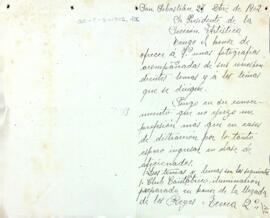 San Sebastián 26 Dbre de 1902
Sr Presidente de la
Sección Artística
Tengo el honor de
ofrecer a V. unas fotografías
acompañadas de sus correspon-
dientes lemas y a los temas
que se dirigen.
Pongo en su conoci-
miento que no ejerzo mi
profesión mas que en casos
de distracción por lo tanto
espero ingresar en clase de
aficionados.
Los temas y lemas son los siguientes
1 Club Cantábrico, iluminación
preparada en honor de la llegada
de los Reyes - Tema 2º